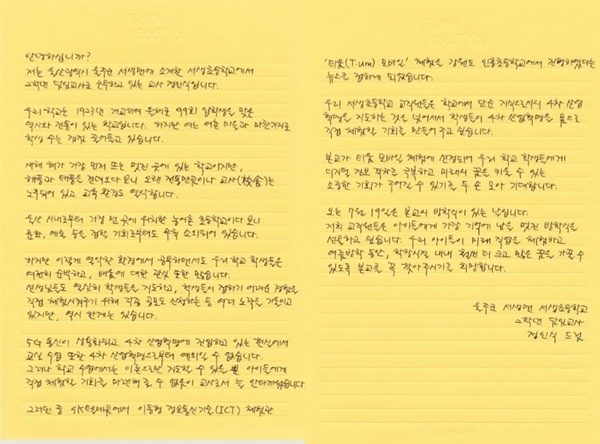 안녕하십니까?
저는 울산광역시 울주군 서생면에 소재한 서생초등학교에서
2학년 담임교사로 근무하고 있는 교사 정인식입니다.
우리 학교는 1923년 개교하여 올해로 99회 입학생을 맞은
역사와 전통이 있는 학교입니다. 하지만 여느 어촌 마을과 마찬가지로
학생 수는 점점 줄어들고 있습니다.
새해 해가 가장 먼저 뜨는 멋진 곳에 있는 학교이지만,
해풍과 태풍을 견뎌오다보니 오랜 전통만큼이나 교사(校舍)는
노후되어 있고 교육 환경도 열악합니다.
울산 시내로부터 가장 먼 곳에 위치한 농어촌 초등학교이다 보니
문화, 예술 등을 접할 기회로부터도 많이 소외되어 있습니다.
하지만 이렇게 열악한 환경에서 공부하면서도 우리 학교 학생들은
여전히 순박하고, 배움에 대한 관심 또한 많습니다.
선생님들도 열심히 학생들을 지도하고, 학생들이 접하기 어려운 경험을
직접 체험시켜주기 위해 각종 공모도 신청하는 등 여러 노력을 기울이고
있지만, 역시 한계는 있습니다.
5G 통신이 상용화되고 4차 산업혁명에 진입하고 있는 현실에서
교실 수업 또한 4차 산업혁명으로부터 예외일 수 없습니다.
그러나 학교 수업에서는 이론으로만 지도할 수 있을 뿐 아이들에게
직접 체험할 기회를 마련해 줄 수 없음이 교사로서 늘 안타까웠습니다.
그러던 중 SK텔레콤에서 이동형 정보통신기술(ICT) 체험관
'티움(T.um) 모바일' 체험을 강원도 인흥초등학교에서 진행하였다는
뉴스를 접하게 되었습니다.
우리 서생초등학교 교직원들은 학교에서 단순 지식으로서의 4차 산업
혁명을 지도하는 것을 넘어서서 학생들이 4차 산업혁명을 몸으로
직접 체험할 기회를 만들어주고 싶습니다.
본교가 티움 모바일 체험에 선정되어 우리 학교 학생들에게
디지털 정보 격차를 극복하고 미래의 꿈을 키울 수 있는
소중한 기회가 주어질 수 있기를 두 손 모아 기대합니다.
오는 7월 19일은 본교의 방학식이 있는 날입니다.
저희 교직원들은 아이들에게 가장 기억에 남을 멋진 방학식을
선물하고 싶습니다. 우리 아이들이 미래 직업을 체험하고
여름방학 동안, 학창시절 내내 훨씬 더 크고 많은 꿈을 가꿀 수
있도록 본교를 꼭 찾아주시기를 희망합니다.
울주군 서생면 서생초등학교
2학년 담임교사
정인식 드림